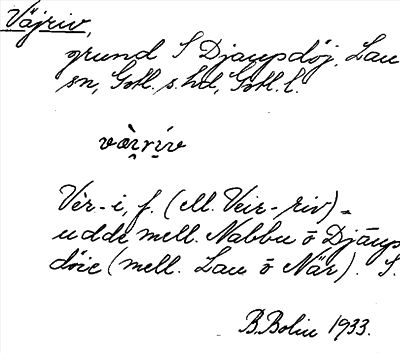 Väjriv,
grund S Djaupdöj, Lau
sn, Gotl. s. hd, Gotl. l.
vài̯rív
Vèr-i, f. (ell. Veir-riv) =
udde mell. Nabbu ō Djāup
döie (mell. Lau ō När). S.
B. Bolin 1933.